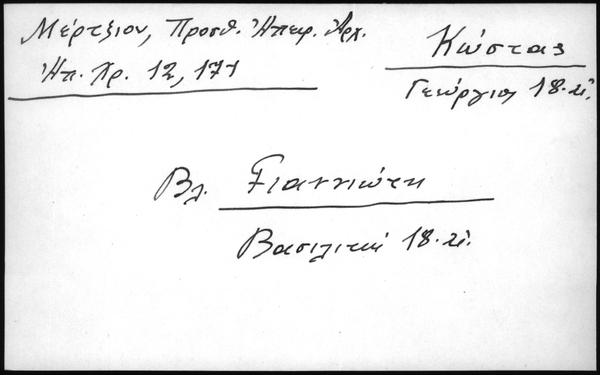 Μέρτζιου, Προσθ. Ηπειρ. Αρχ.
Ηπ. Χρ. 12, 171
Κώστας
Γεώργιος 18. αἰ.
Βλ. Γιαννιώτη
Βασιλική 18. αἰ.